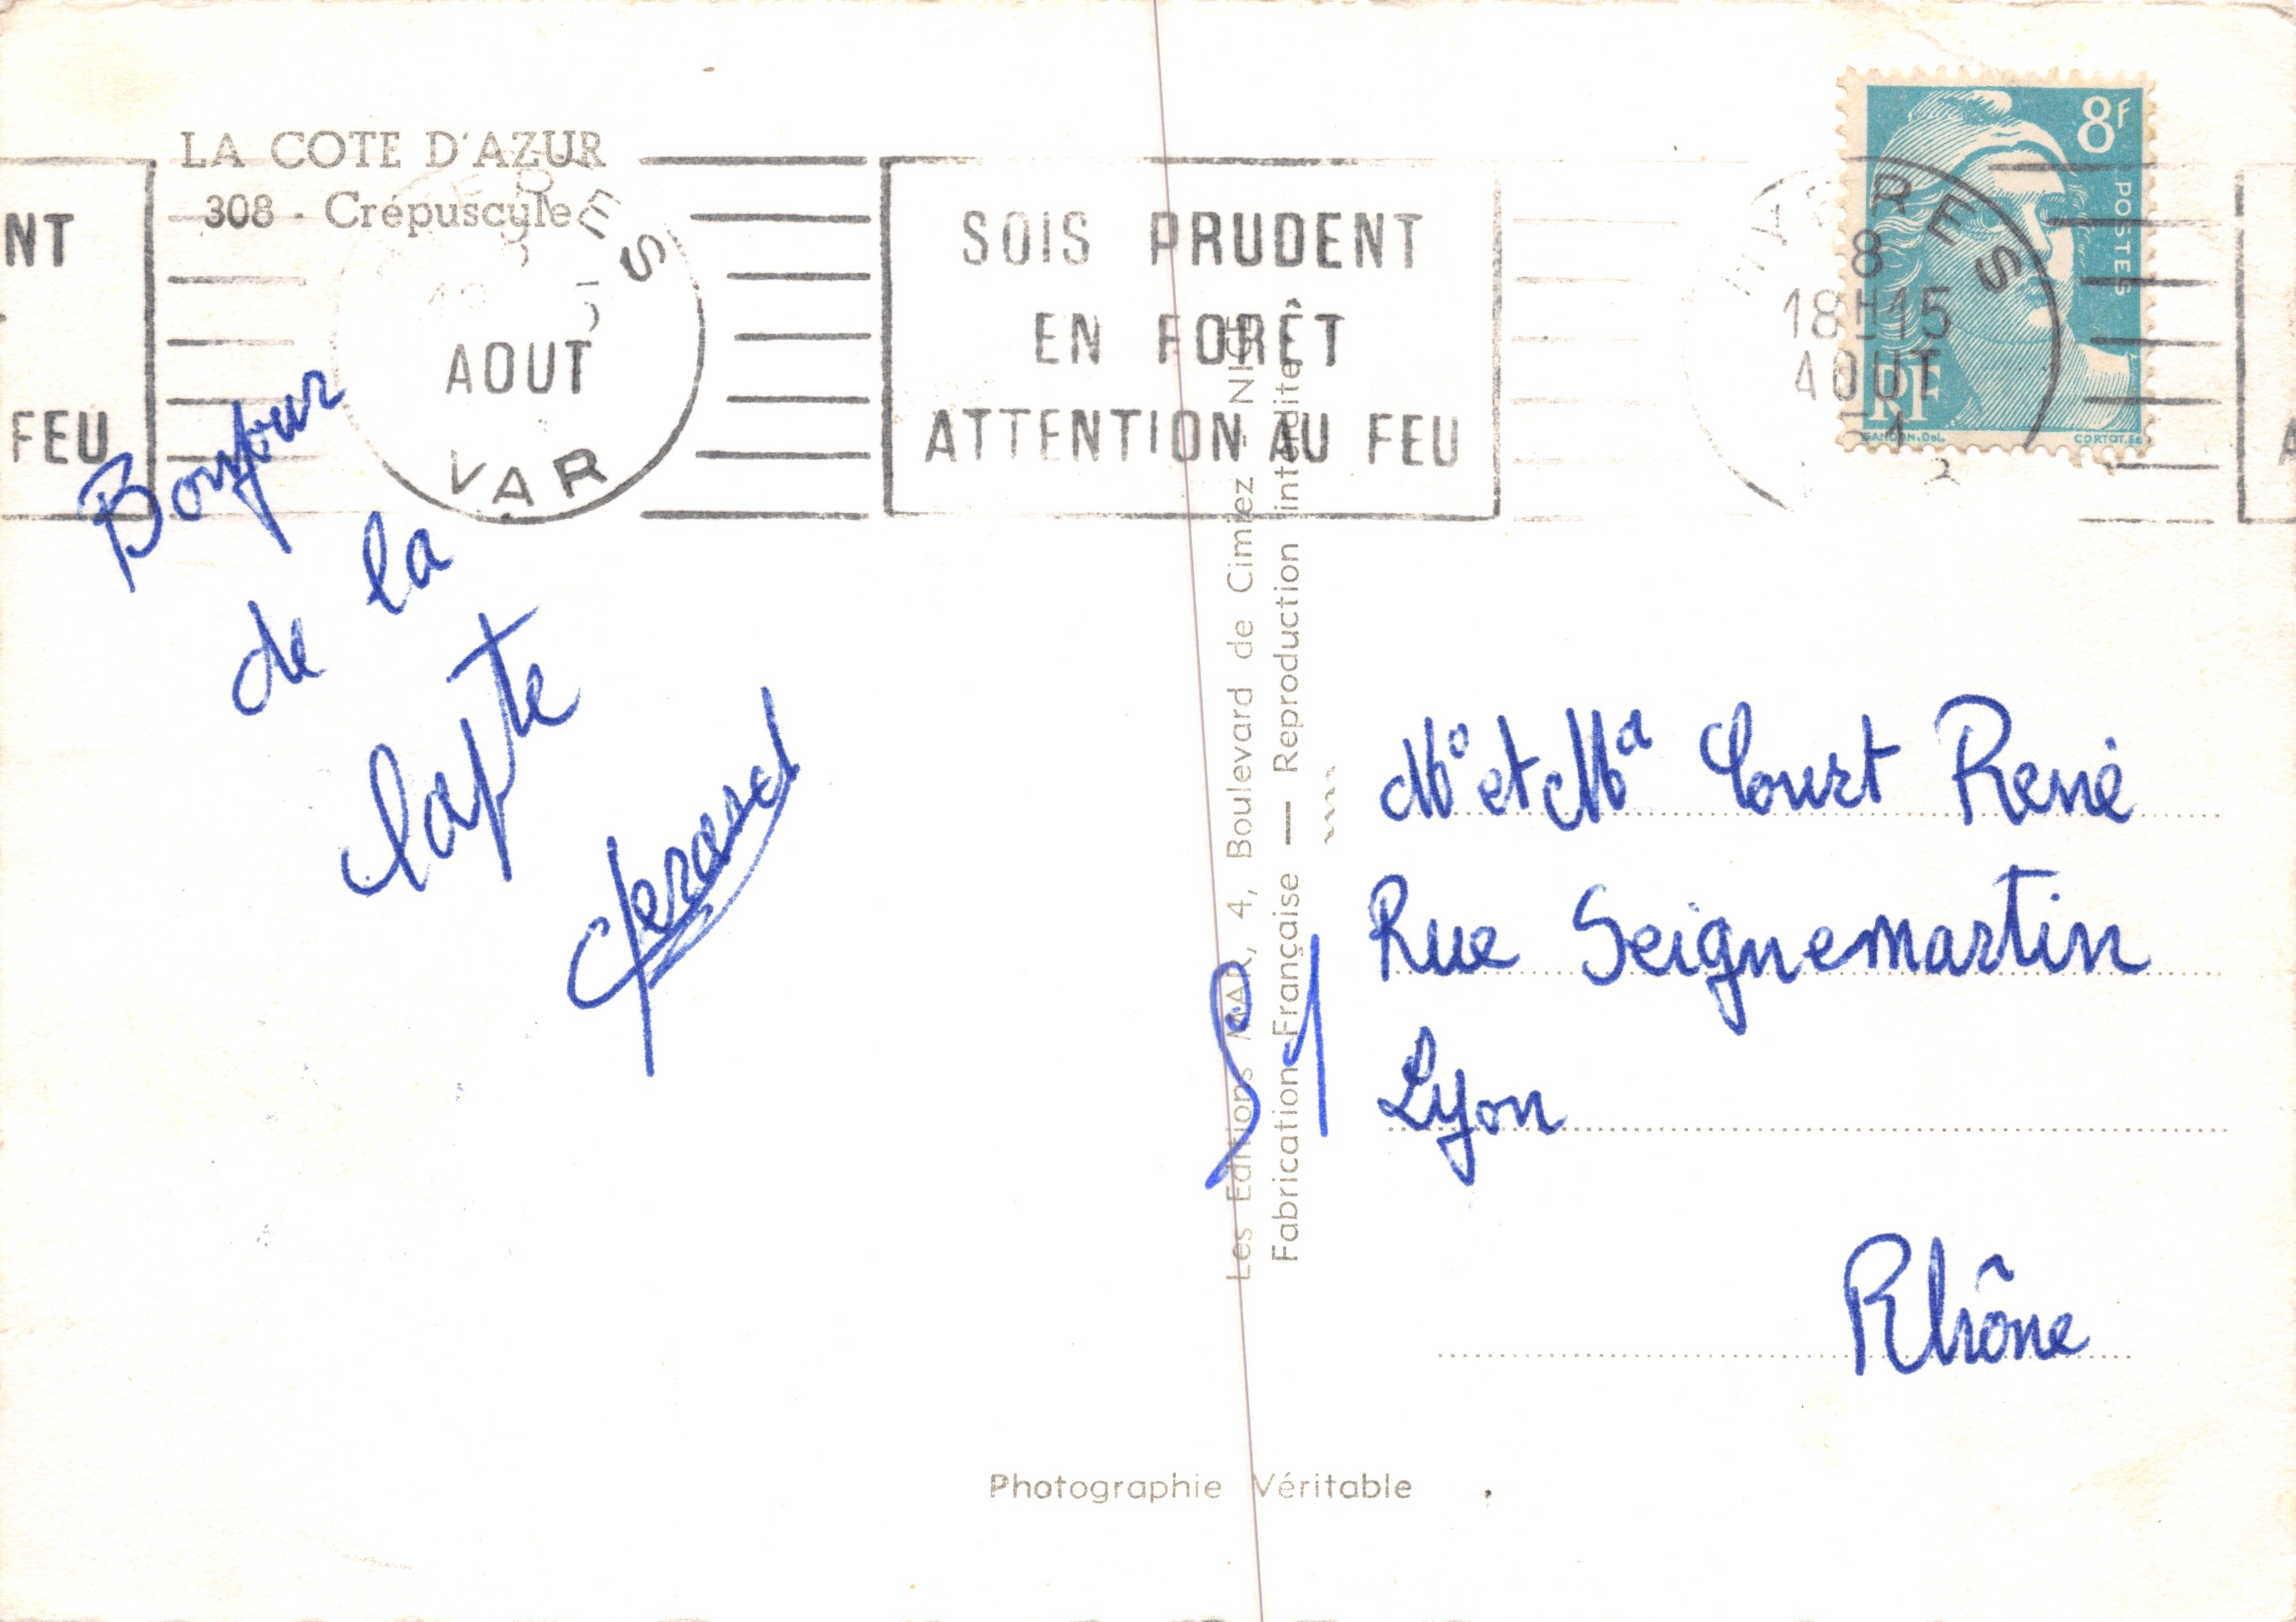 LA COTE D'AZUR
308 - Crépuscule
NT
FEU
RES
AOUT
VAR
SOIS PRUDENT
EN FORÊT
ATTENTION AU FEU
RES
8
18H15
AOUT
8F
POSTES
RF
GANDON.Del.
CORTOT.
Bonjour
de la
Capte
Gerard
Les Editions MAR, 4, Boulevard de Cimiez - NICE
Fabrication Française — Reproduction interdite
51
Mr et Ma Court René
Rue Seignemartin
Lyon
Rhône
Photographie Véritable